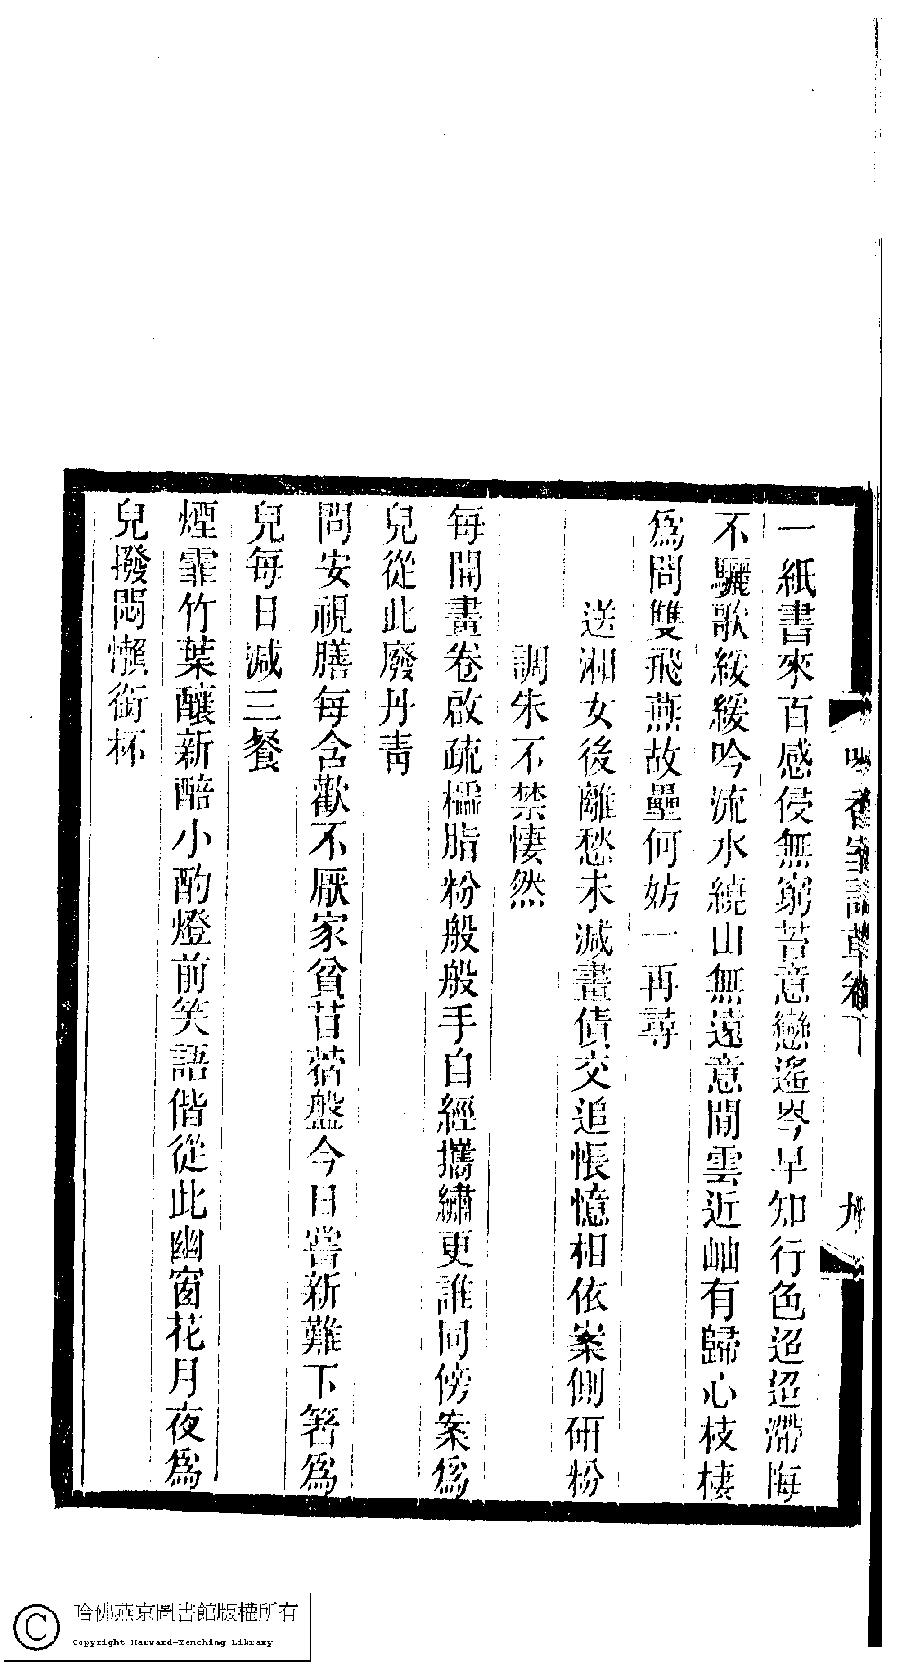 一紙書來百感侵無窮苦意戀遙岑早知行色迢迢滯悔
不驪歌緩緩吟流水繞山無遠意閒雲近岫有歸心枝棲
為問雙飛燕故壘何妨一再尋
送湘女後離愁未減畫債交追悵憶相依案側研粉
調朱不禁悽然
每開畫卷啟疏櫺脂粉般般手自經攜繡更誰同傍案為
兒從此廢丹青
問安視膳每含歡不厭家貧苜蓿盤今日嘗新難下箸為
兒每日減三餐
煙霏竹葉釀新醅小酌燈前笑語偕從此幽窗花月夜為
兒撥悶懶銜杯
香室詩草卷下
九
哈佛燕京圖書館版權所有
Copyright Harvard-Yenching Library